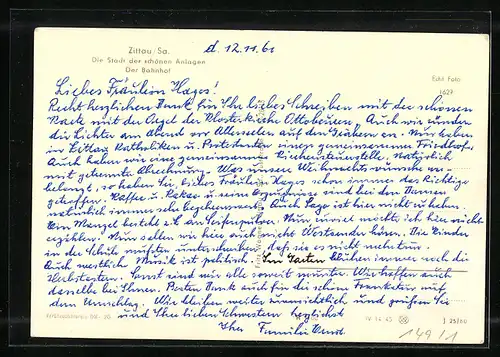 Zittau/Sa.
Die Stadt der schönen Anlagen
Der Bahnhof
d. 12.11.61
Echt Foto
1629
Liebes Fräulein Hages!
Recht herzlichen Dank für Ihr liebes Schreiben mit der schönen
Karte mit der Orgel der Klosterkirche Ottobeuren. Auch wir zünden
die Lichter am Abend vor Allerseelen auf den Gräbern an. Wir haben
in Zittau Katholiken u. Protestanten einen gemeinsamen Friedhof.
Auch haben wir eine gemeinsame Kirchensteuerstelle. Natürlich
mit getrennte Abrechnung. Was unsere Weihnachtswünsche an-
belangt, so haben Sie, liebes Fräulein Hages schon immer das Richtige
getroffen. Kaffee u. Kakao u. neue Strümpfe sind bei den Damen
natürlich immer sehr begehrenswert. Auch Sago ist hier nicht zu haben.
Ein Mangel besteht z.Z. an Seifenpulver. Nun zuviel möchte ich hier nicht
erzählen. Nun sollen wir hier auch nicht Westsender hören. Die Kinder
in der Schule mußten unterschreiben, daß sie es nicht mehr tun.
Auch westliche Musik ist politisch. Im Garten blühen immer noch die
Herbstastern. Sonst sind wir alle soweit munter. Wir hoffen auch
dasselbe bei Ihnen. Besten Dank auch für die schöne Frankatur auf
dem Umschlag. Wir bleiben weiter zuversichtlich und grüßen Sie
und Ihre lieben Schwestern herzlichst
Ihre Familie
IV-14-45
J 25/60
149/1